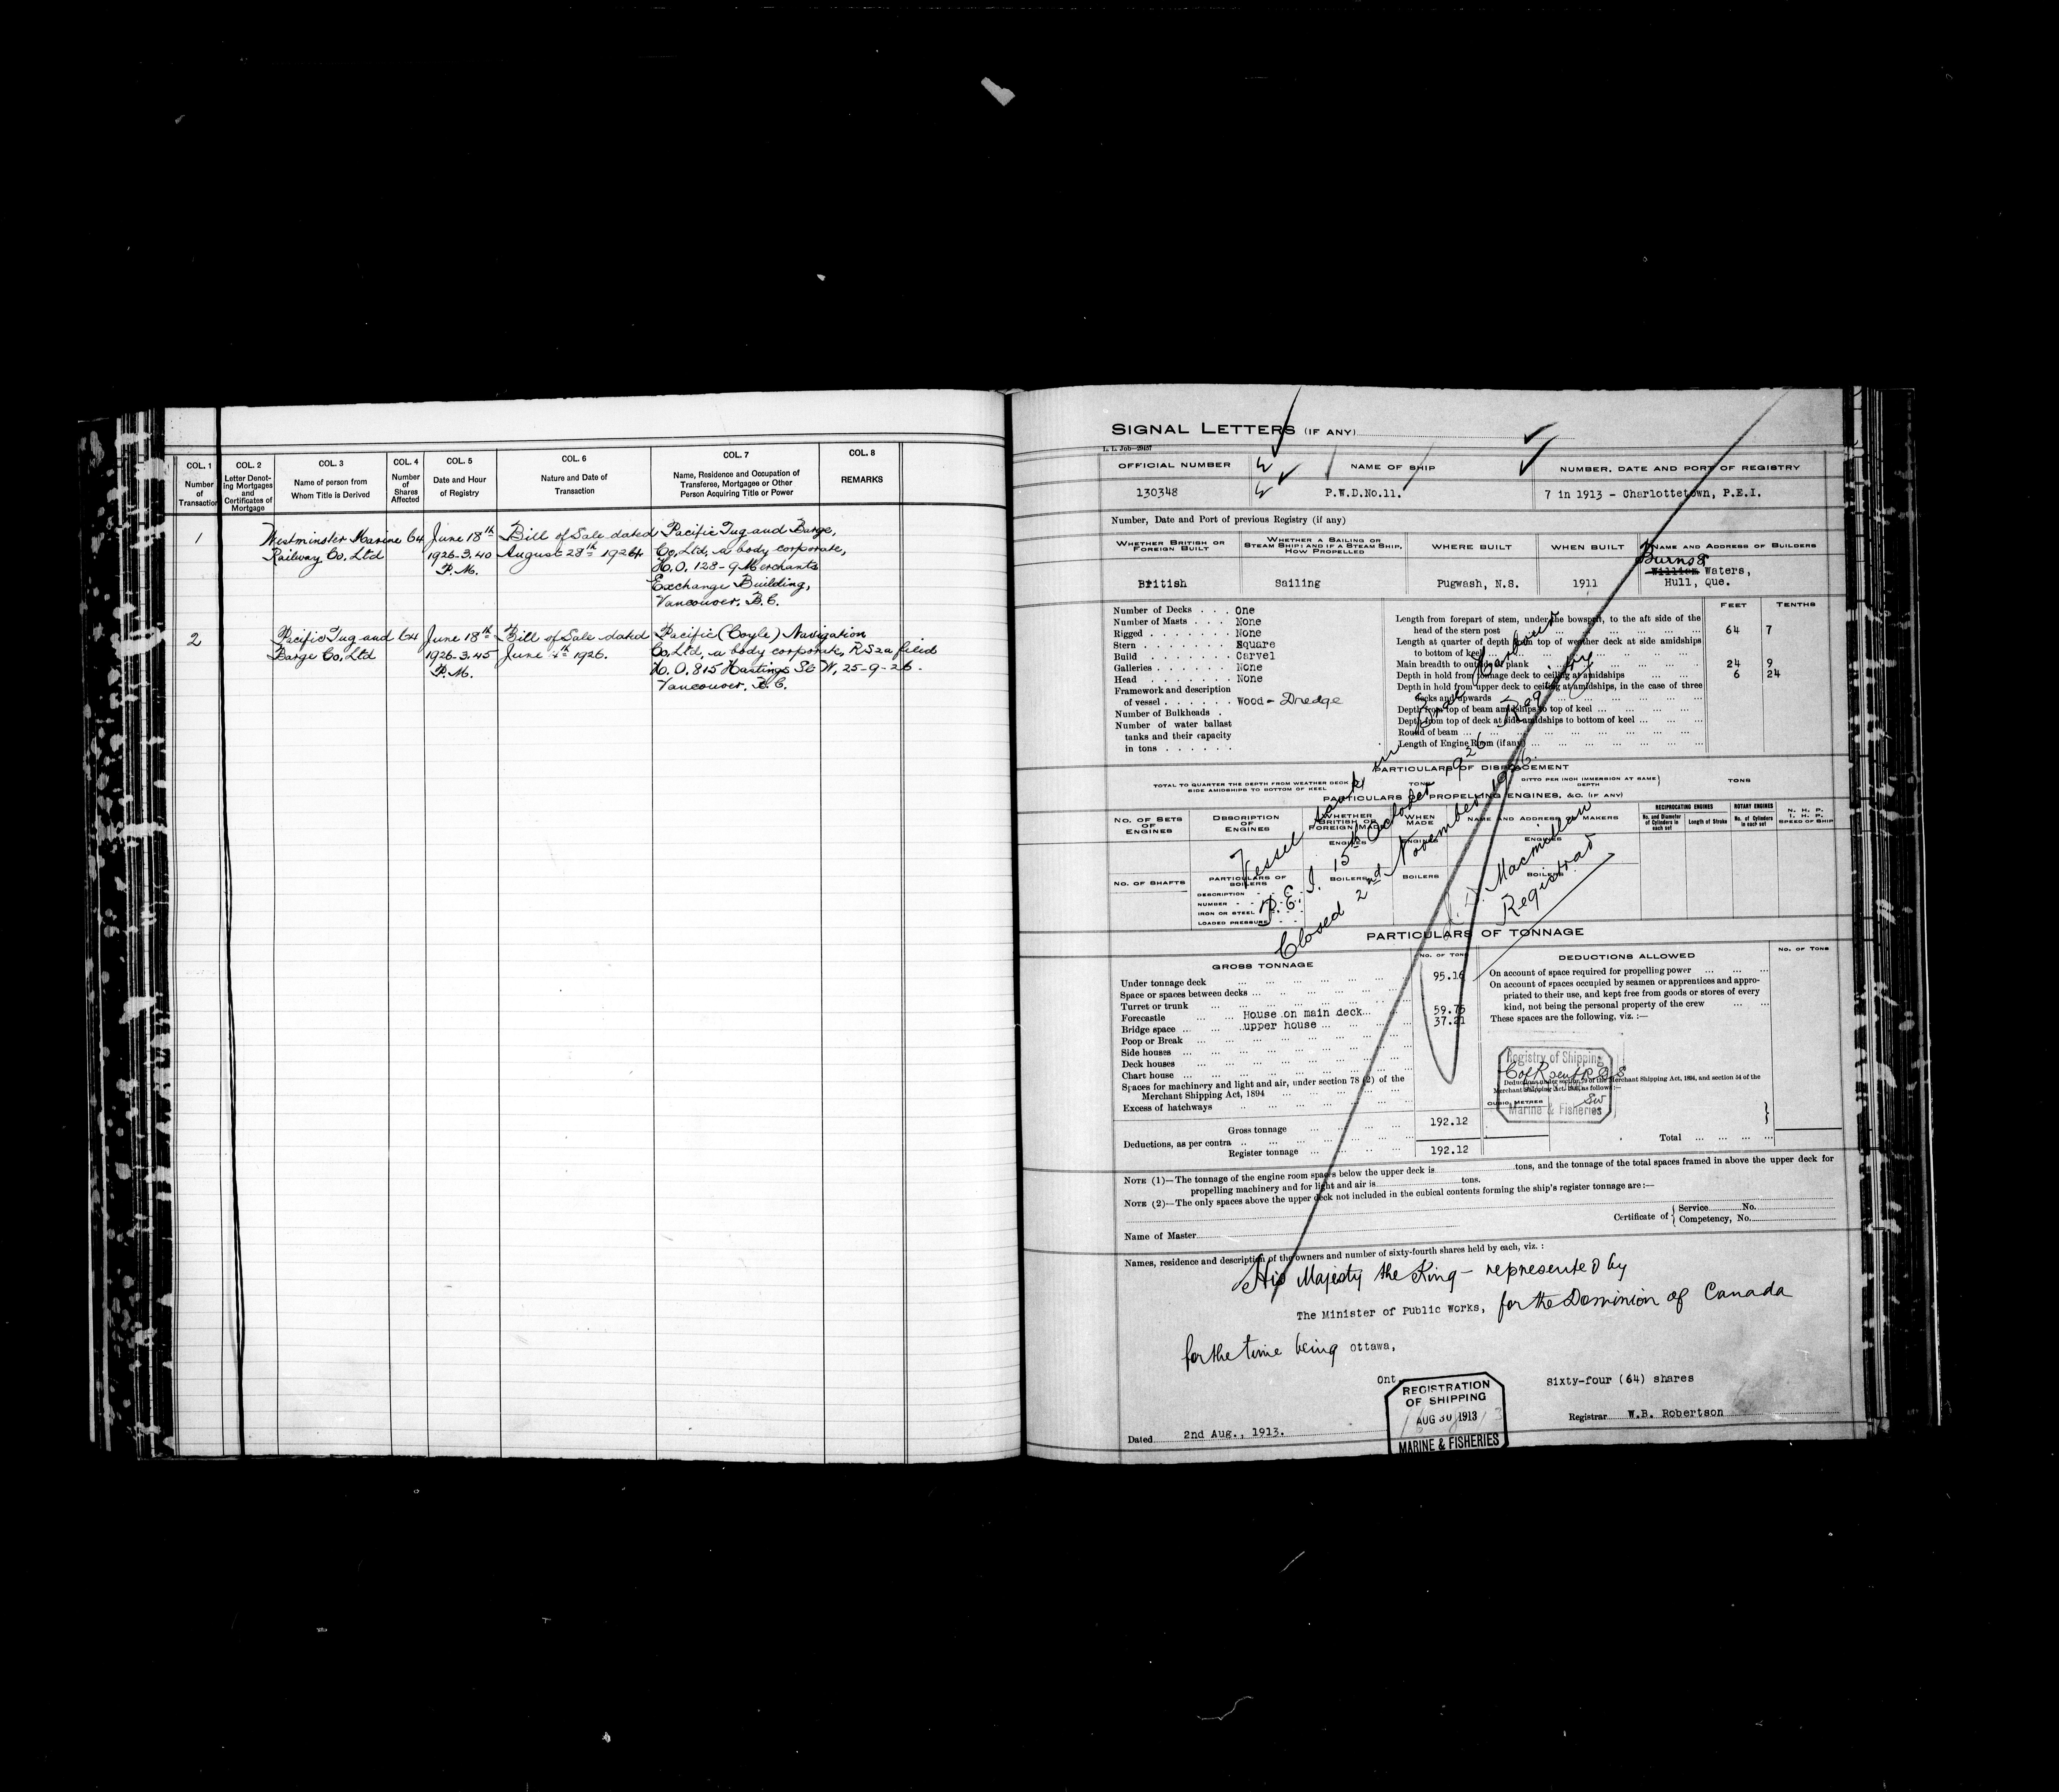 COL. 1
Number
of
Transaction
COL. 2
Letter Denot-
ing Mortgages
and
Certificates of
Mortgage
COL. 3
Name of person from
Whom Title is Derived
COL. 4
Number
of
Shares
Affected
COL. 5
Date and Hour
of Registry
COL. 6
Nature and Date of
Transaction
COL. 7
Name, Residence and Occupation of
Transferee, Mortgagee or Other
Person Acquiring Title or Power
COL. 8
REMARKS
1 Westminster Marine 64 June 18th Bill of Sale dated Pacific Tug and Barge,
Railway Co, Ltd 1926-3.40 August 28th 1924 Co, Ltd, a body corporate,
P.M. H.O. 128-9 Merchants
Exchange Building,
Vancouver, B.C.
2 Pacific Tug and 64 June 18th Bill of Sale dated Pacific (Coyle) Navigation
Barge Co, Ltd 1926-3.45 June 4th 1926. Co, Ltd, a body corporate, RS2a filed
P.M. H.O. 815 Hastings St W, 25-9-26.
Vancouver, B.C.
SIGNAL LETTERS (IF ANY)
L. L. Job—29457
OFFICIAL NUMBER NAME OF SHIP NUMBER, DATE AND PORT OF REGISTRY
130348 P.W.D.No.11. 7 in 1913 - Charlottetown, P.E.I.
Number, Date and Port of previous Registry (if any)
WHETHER BRITISH OR
FOREIGN BUILT
WHETHER A SAILING OR
STEAM SHIP; AND IF A STEAM SHIP,
HOW PROPELLED
WHERE BUILT WHEN BUILT NAME AND ADDRESS OF BUILDERS
Burns &
William Waters,
British Sailing Pugwash, N.S. 1911 Hull, Que.
FEET TENTHS
Number of Decks . . . One
Number of Masts . . . None
Rigged . . . . . . . None
Stern . . . . . . . Square
Build . . . . . . . Carvel
Galleries . . . . . . None
Head . . . . . . . None
Framework and description
of vessel . . . . . . Wood - Dredge
Number of Bulkheads .
Number of water ballast
tanks and their capacity
in tons . . . . . .
Length from forepart of stem, under the bowsprit, to the aft side of the
head of the stern post 64 7
Length at quarter of depth from top of weather deck at side amidships
to bottom of keel
Main breadth to outside of plank 24 9
Depth in hold from tonnage deck to ceiling at amidships 6 24
Depth in hold from upper deck to ceiling at amidships, in the case of three
decks and upwards
Depth from top of beam amidships to top of keel
Depth from top of deck at side amidships to bottom of keel
Round of beam
Length of Engine Room (if any)
PARTICULARS OF DISPLACEMENT
TOTAL TO QUARTER THE DEPTH FROM WEATHER DECK
SIDE AMIDSHIPS TO BOTTOM OF KEEL
TONS
DITTO PER INCH IMMERSION AT SAME
DEPTH
TONS
PARTICULARS OF PROPELLING ENGINES, &C. (IF ANY)
NO. OF SETS
OF
ENGINES
DESCRIPTION
OF
ENGINES
WHETHER
BRITISH OR
FOREIGN MADE
WHEN
MADE
NAME AND ADDRESS OF MAKERS
RECIPROCATING ENGINES
No. and Diameter
of Cylinders in
each set
Length of Stroke
ROTARY ENGINES
No. of Cylinders
in each set
N. H. P.
I. H. P.
SPEED OF SHIP
ENGINES ENGINES ENGINES
NO. OF SHAFTS
PARTICULARS OF
BOILERS
BOILERS BOILERS BOILERS
DESCRIPTION
NUMBER
IRON OR STEEL
LOADED PRESSURE
Vessel sunk in Harbour
P.E.I. 15th October 1926 Registry
Closed 2nd November 1926.
Macmillan
Registrar
PARTICULARS OF TONNAGE
GROSS TONNAGE NO. OF TONS
Under tonnage deck 95.16
Space or spaces between decks
Turret or trunk
Forecastle House on main deck 59.75
Bridge space upper house 37.21
Poop or Break
Side houses
Deck houses
Chart house
Spaces for machinery and light and air, under section 78 (2) of the
Merchant Shipping Act, 1894
Excess of hatchways
Gross tonnage 192.12
Deductions, as per contra
Register tonnage 192.12
DEDUCTIONS ALLOWED NO. OF TONS
On account of space required for propelling power
On account of spaces occupied by seamen or apprentices and appro-
priated to their use, and kept free from goods or stores of every
kind, not being the personal property of the crew
These spaces are the following, viz. :—
Registry of Shipping
Deductions under section 79 of the Merchant Shipping Act, 1894, and section 54 of the
Merchant Shipping Act, as follows:—
CUBIC METRES
Marine & Fisheries
Total
NOTE (1)—The tonnage of the engine room spaces below the upper deck is tons, and the tonnage of the total spaces framed in above the upper deck for
propelling machinery and for light and air is tons.
NOTE (2)—The only spaces above the upper deck not included in the cubical contents forming the ship's register tonnage are :—
Certificate of { Service No.
Competency, No.
Name of Master
Names, residence and description of the owners and number of sixty-fourth shares held by each, viz. :
His Majesty the King - represented by
The Minister of Public Works, for the Dominion of Canada
for the time being Ottawa,
Ont. Sixty-four (64) shares
REGISTRATION
OF SHIPPING
AUG 30 1913
MARINE & FISHERIES
Registrar W.B. Robertson
Dated 2nd Aug., 1913.